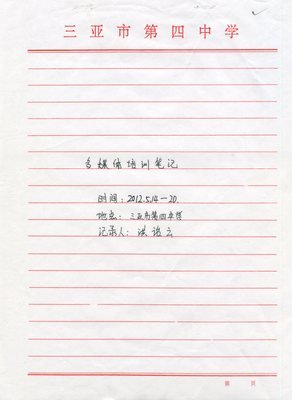 三亚市第四中学
多媒体培训笔记
时间：2012.5.14—20
地点：三亚市第四中学
记录人：洪
第 页